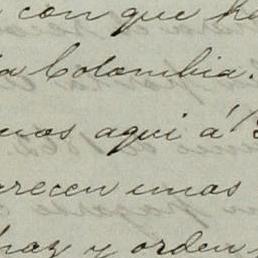 con que
a Colombia.
mos aqui á
arecen unas
haz y orden